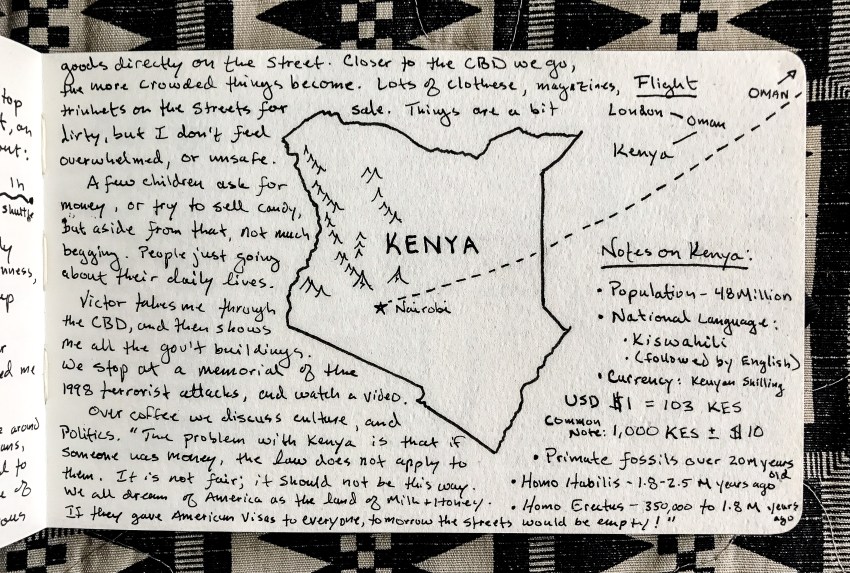 goods directly on the street. Closer to the CBD we go,
the more crowded things become. Lots of clothese, magazines,
trinkets on the streets for sale. Things are a bit
dirty, but I don't feel
overwhelmed, or unsafe.
A few children ask for
money, or try to sell candy,
but aside from that, not much
begging. People just going
about their daily lives.
Victor takes me through
the CBD, and then shows
me all the gov't buildings.
We stop at a memorial of the
1998 terrorist attacks, and watch a video.
Over coffee we discuss culture, and
Politics. "The problem with Kenya is that if
someone has money, the law does not apply to
them. It is not fair; it should not be this way.
We all dream of America as the land of Milk + Honey.
If they gave American Visas to everyone, tomorrow the streets would be empty!"
KENYA
Nairobi
Flight
London
Oman
Kenya
OMAN
Notes on Kenya:
• Population - 48 Million
• National Language:
• Kiswahili
• (followed by English)
• Currency: Kenyan Shilling
USD $1 = 103 KES
Common
Note: 1,000 KES ± $10
• Primate fossils over 20M years old
• Homo Habilis - 1.8-2.5 M years ago
• Homo Erectus - 350,000 to 1.8 M years ago
top
1h
shuttle
up
me
around
to
of